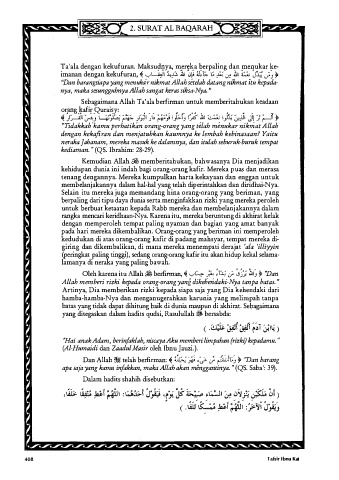 2. SURAT AL BAQARAH
Ta'ala dengan kekufuran. Maksudnya, mereka berpaling dan menukar ke-
imanan dengan kekufuran, ﴿ وَمَن يُبَدِّلْ نِعْمَةَ اللَّهِ مِن بَعْدِ مَا جَاءَتْهُ فَإِنَّ اللَّهَ شَدِيدُ الْعِقَابِ ﴾
"Dan barangsiapa yang menukar nikmat Allah setelah datang nikmat itu kepada-
nya, maka sesungguhnya Allah sangat keras siksa-Nya."
Sebagaimana Allah Ta'ala berfirman untuk memberitahukan keadaan
orang kafir Quraisy:
﴿ أَلَمْ تَرَ إِلَى الَّذِينَ بَدَّلُوا نِعْمَتَ اللَّهِ كُفْرًا وَأَحَلُّوا قَوْمَهُمْ دَارَ الْبَوَارِ جَهَنَّمَ يَصْلَوْنَهَا وَبِئْسَ الْقَرَارُ ﴾
"Tidakkah kamu perhatikan orang-orang yang telah menukar nikmat Allah
dengan kekafiran dan menjatuhkan kaumnya ke lembah kebinasaan? Yaitu
neraka Jahanam, mereka masuk ke dalamnya, dan itulah seburuk-buruk tempat
kediaman." (QS. Ibrahim: 28-29).
Kemudian Allah ﷻ memberitahukan, bahwasanya Dia menjadikan
kehidupan dunia ini indah bagi orang-orang kafir. Mereka puas dan merasa
tenang dengannya. Mereka kumpulkan harta kekayaan dan enggan untuk
membelanjakannya dalam hal-hal yang telah diperintahkan dan diridhai-Nya.
Selain itu mereka juga memandang hina orang-orang yang beriman, yang
berpaling dari tipu daya dunia serta menginfakkan rizki yang mereka peroleh
untuk berbuat ketaatan kepada Rabb mereka dan membelanjakannya dalam
rangka mencari keridhaan-Nya. Karena itu, mereka beruntung di akhirat kelak
dengan memperoleh tempat paling nyaman dan bagian yang amat banyak
pada hari mereka dibangkitkan. Orang-orang yang beriman ini memperoleh
kedudukan di atas orang-orang kafir di padang mahsyar, tempat mereka di-
giring dan dikembalikan, di mana mereka menempati derajat 'ala 'illiyyin
(peringkat paling tinggi), sedang orang-orang kafir itu akan hidup kekal selama-
lamanya di neraka yang paling bawah.
Oleh karena itu Allah ﷻ berfirman, ﴿ وَاللَّهُ يَرْزُقُ مَن يَشَاءُ بِغَيْرِ حِسَابٍ ﴾ "Dan
Allah memberi rizki kepada orang-orang yang dikehendaki-Nya tanpa batas."
Artinya, Dia memberikan rizki kepada siapa saja yang Dia kehendaki dari
hamba-hamba-Nya dan menganugerahkan karunia yang melimpah tanpa
batas yang tidak dapat dihitung baik di dunia maupun di akhirat. Sebagaimana
yang ditegaskan dalam hadits qudsi, Rasulullah ﷺ bersabda:
( يَا ابْنَ آدَمَ أَنْفِقْ أُنْفِقْ عَلَيْكَ. )
"Hai anak Adam, berinfaklah, niscaya Aku memberi limpahan (rizki) kepadamu."
(Al-Humaidi dan Zaadul Masir oleh Ibnu Jauzi.).
Dan Allah ﷻ telah berfirman: ﴿ وَمَا أَنفَقْتُم مِّن شَيْءٍ فَهُوَ يُخْلِفُهُ ﴾ "Dan barang
apa saja yang kamu infakkan, maka Allah akan menggantinya." (QS. Saba': 39).
Dalam hadits shahih disebutkan:
( أَنَّ مَلَكَيْنِ يَنْزِلَانِ مِنَ السَّمَاءِ صَبِيْحَةَ كُلِّ يَوْمٍ، فَيَقُوْلُ أَحَدُهُمَا: اللَّهُمَّ أَعْطِ مُنْفِقًا خَلَفًا،
وَيَقُوْلُ الْآخَرُ: اللَّهُمَّ أَعْطِ مُمْسِكًا تَلَفًا. )
408
Tafsir Ibnu Kat